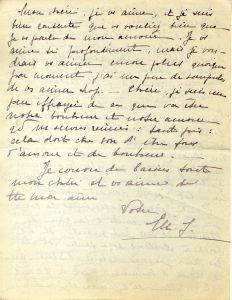 Mon chéri, je vs aime, et je suis
bien contente que vs vouliez bien que
je vs parle de mon amour. Je vs
aime si profondément, mais je vou-
drais vs aimer encore plus quoique
par moment j'ai un peu de
de vs aimer trop. Chérie, je suis un
peu effrayée de ce que va être
notre bonheur et notre amour
qd ns serons réunis :
cela doit être
d'amour et de bonheur.
Je vs couvre de baisers
mon chéri et vs aime de
tte mon âme
Votre